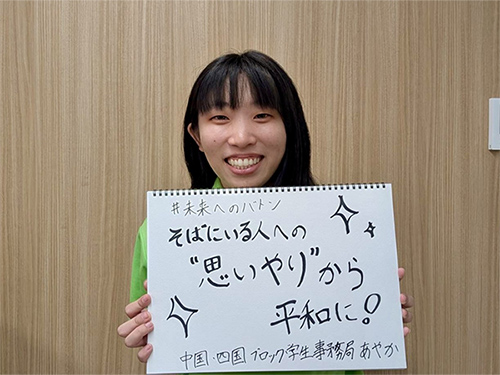 #未来へのバトン
そばにいる人への
“思いやり”から
平和に!
中国・四国ブロック学生事務局 あやか